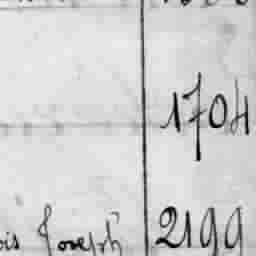 1704
ois Joseph 2199